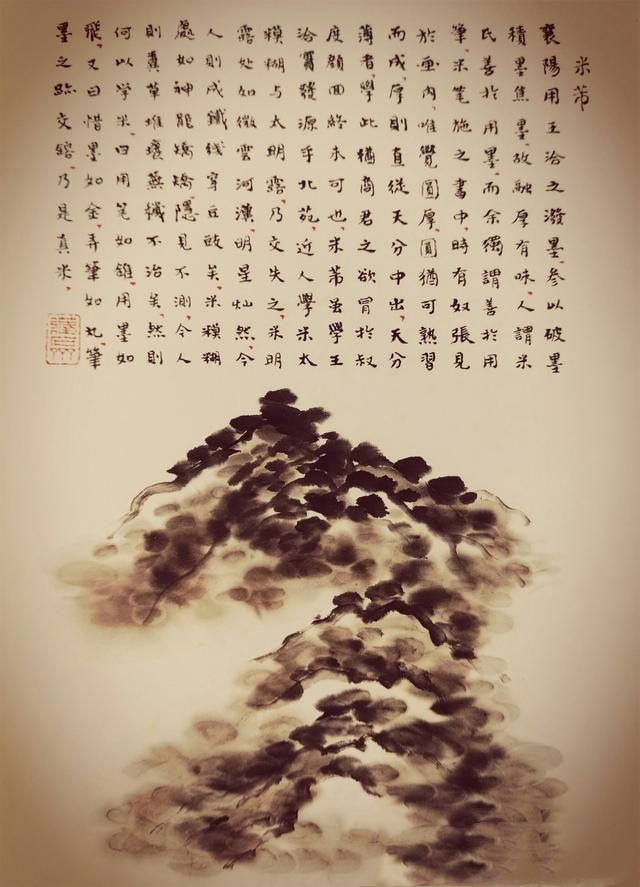 米芾
襄陽用王洽之潑墨參以破墨
積墨焦墨故融厚有味人謂米
氏善於用墨而余獨謂善於用
筆米笔施之書中時有奴張見
於画内唯覺圓厚圓猶可熟習
而成厚則直從天分中出天分
薄者學此猶商君之欲冒於叔
度顏回終未可也米芾虽學王
洽實發源乎北苑近人學米太
模糊与太明露乃交失之米明
露处如微雲河漢明星灿然今
人則成鐵线穿豆豉矣米模糊
處如神龍矯矯隱見不測今人
則糞草堆壞蕪穢不治矣然則
何以学米曰用笔如錐用墨如
飛又曰惜墨如金弄筆如丸筆
墨之跡交鎔乃是真米